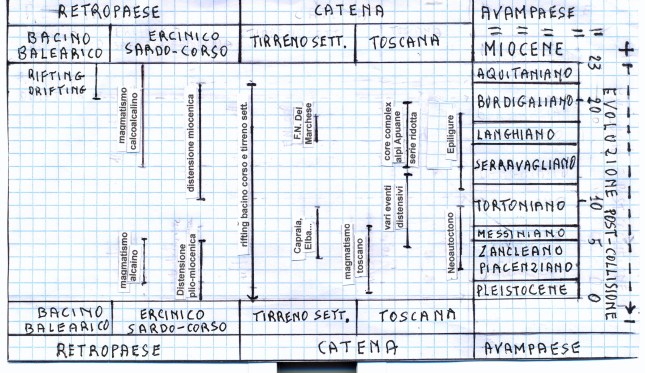 RETROPAESE
CATENA
AVAMPAESE
BACINO
BALEARICO
ERCINICO
SARDO-CORSO
TIRRENO SETT.
TOSCANA
MIOCENE
RIFTING
DRIFTING
magmatismo
calcoalcalino
distensione miocenica
rifting bacino corso e tirreno sett.
F.N. Dei
Marchese
core complex
alpi Apuane
serie ridotta
Epiligure
AQUITANIANO
BURDIGALIANO
LANGHIANO
SERRAVAGLIANO
TORTONIANO
MESSINIANO
ZANCLEANO
PIACENZIANO
PLEISTOCENE
23
20
10
5
0
+
EVOLUZIONE POST-COLLISIONE
magmatismo
alcaino
Distensione
plio-miocenica
Capraia,
Elba...
magmatismo
toscano
vari eventi
distensivi
Neoautoctono
BACINO
BALEARICO
ERCINICO
SARDO-CORSO
TIRRENO SETT.
TOSCANA
RETROPAESE
CATENA
AVAMPAESE